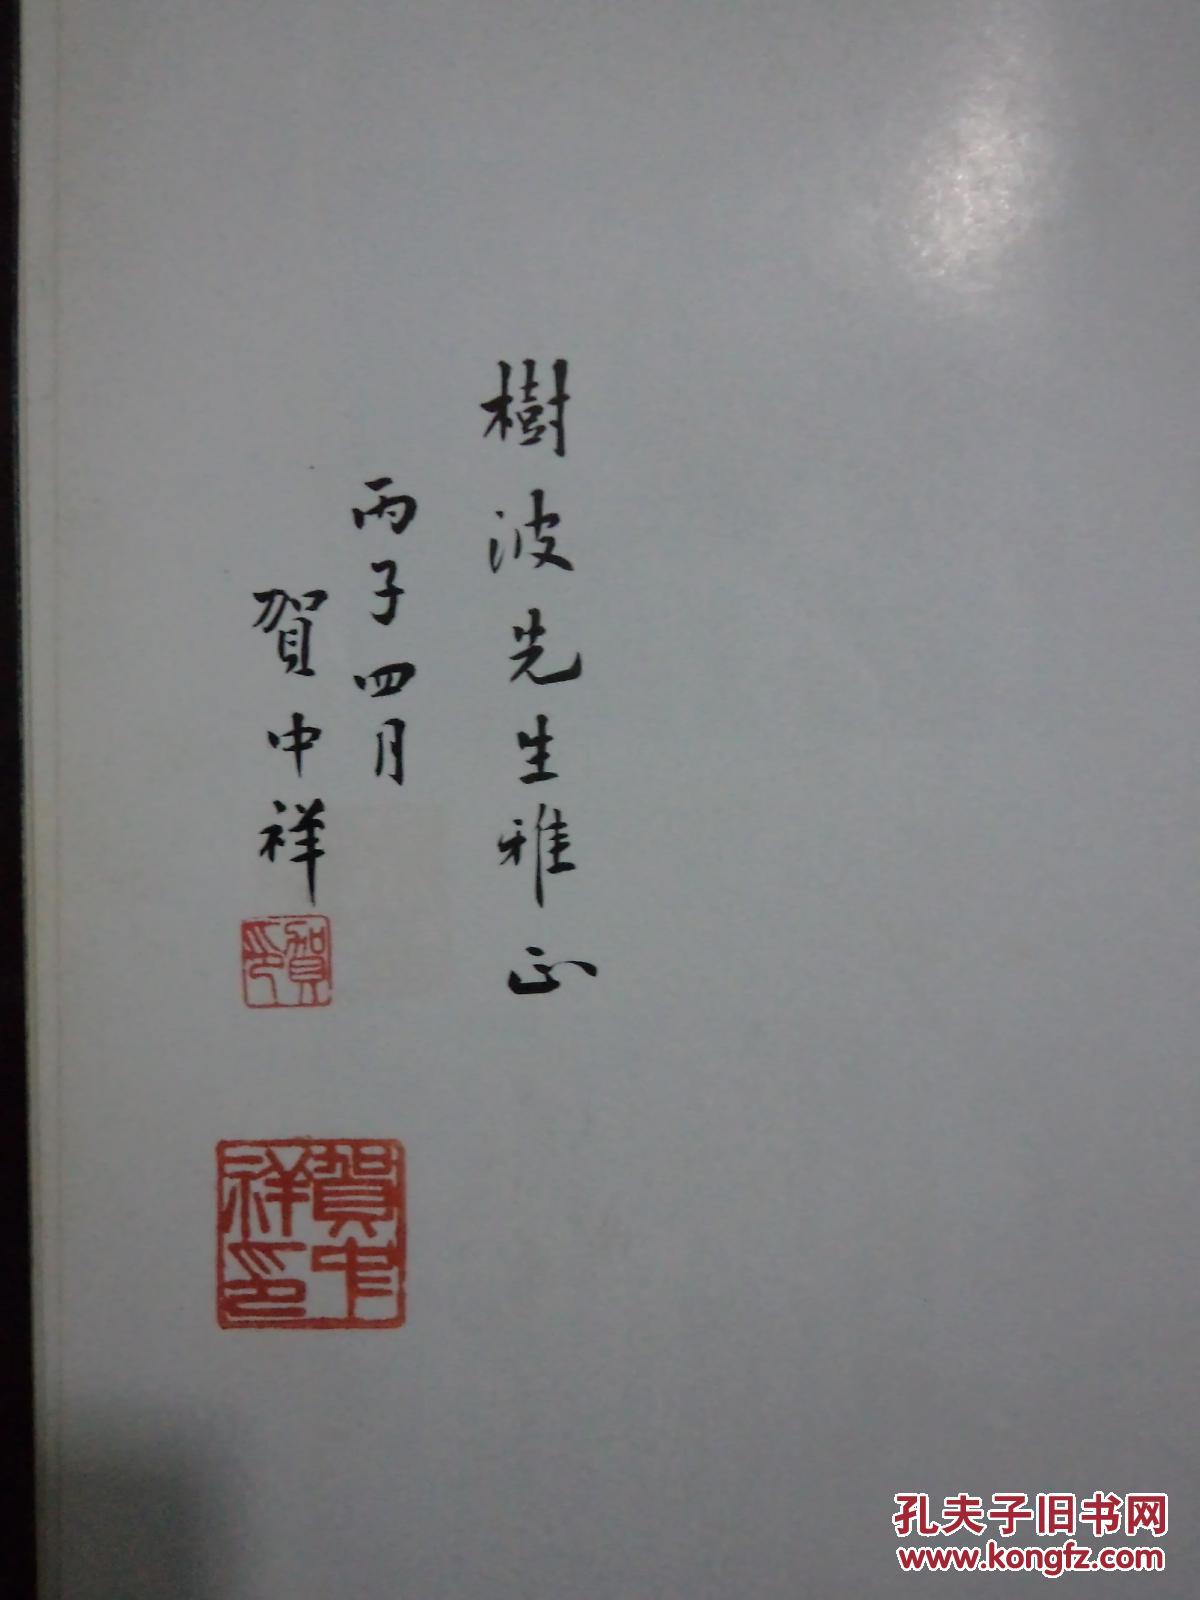 樹波先生雅正
丙子四月
賀中祥
賀印
賀中祥印
孔夫子旧书网
www.kongfz.com